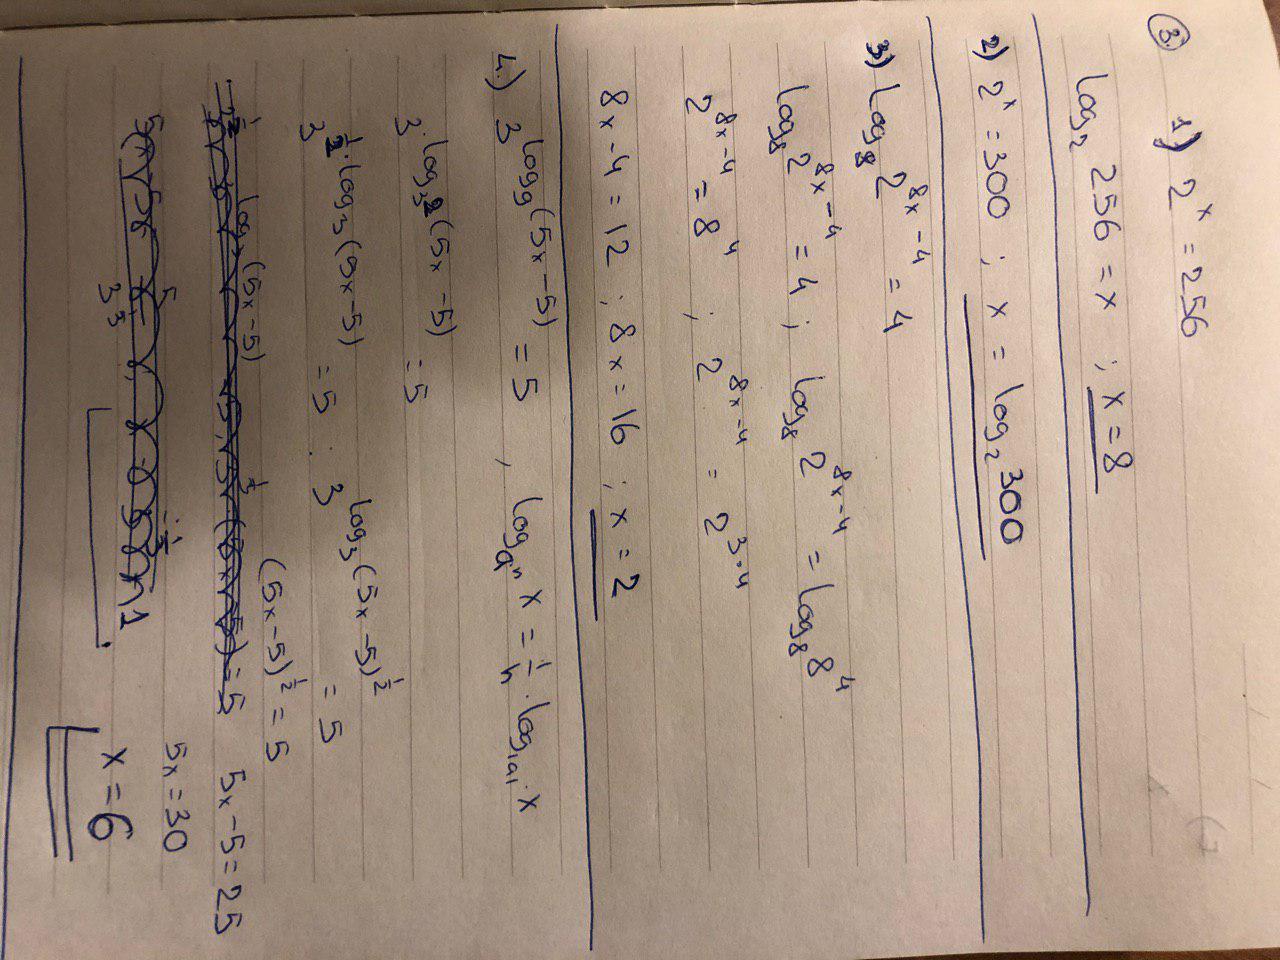 3.
1) 2^x = 256
log₂ 256 = x ; x = 8
2) 2^x = 300 ; x = log₂ 300
3) log₈ 2^(8x-4) = 4
log₈ 2^(8x-4) = 4 ; log₈ 2^(8x-4) = log₈ 8^4
2^(8x-4) = 8^4 ; 2^(8x-4) = 2^(3·4)
8x - 4 = 12 ; 8x = 16 ; x = 2
4.) 3^(log₉(5x-5)) = 5 , log_(a^n) x = 1/n · log_|a| x
3^(log_(3^2)(5x-5)) = 5
3^(1/2 · log₃(5x-5)) = 5 ; 3^(log₃(5x-5)^(1/2)) = 5
(5x-5)^(1/2) = 5
5x - 5 = 25
5x = 30
x = 6